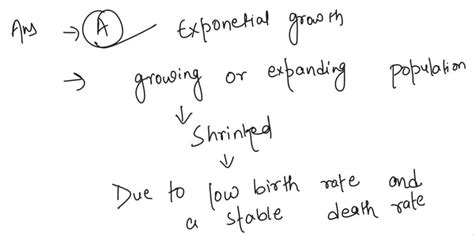 Ans → (A) Exponetial growth
→ growing or expanding population
↓
Shrinked
↓
Due to low birth rate and
a stable death rate